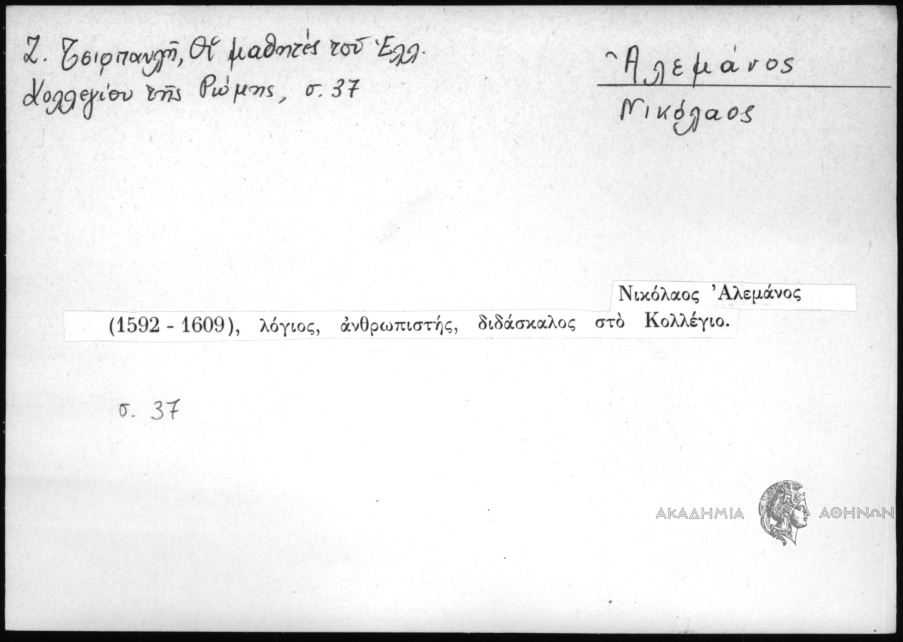 Ζ. Τσιρπανλῆ, Οἱ μαθητές τοῦ Ἑλλ.
Κολλεγίου τῆς Ρώμης, σ. 37
Ἀλεμάνος
Νικόλαος
Νικόλαος Ἀλεμάνος
(1592 - 1609), λόγιος, ἀνθρωπιστής, διδάσκαλος στὸ Κολλέγιο.
σ. 37
ΑΚΑΔΗΜΙΑ ΑΘΗΝΩΝ